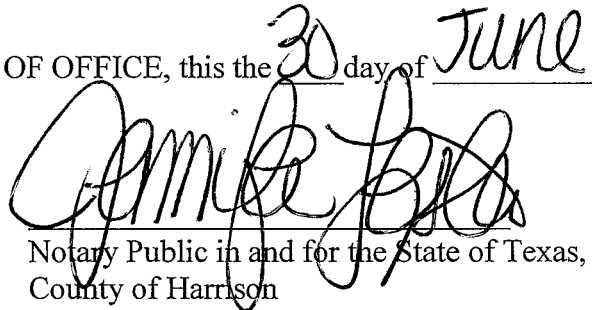 OF OFFICE, this the 30 day of June
Jennifer
Notary Public in and for the State of Texas,
County of Harrison